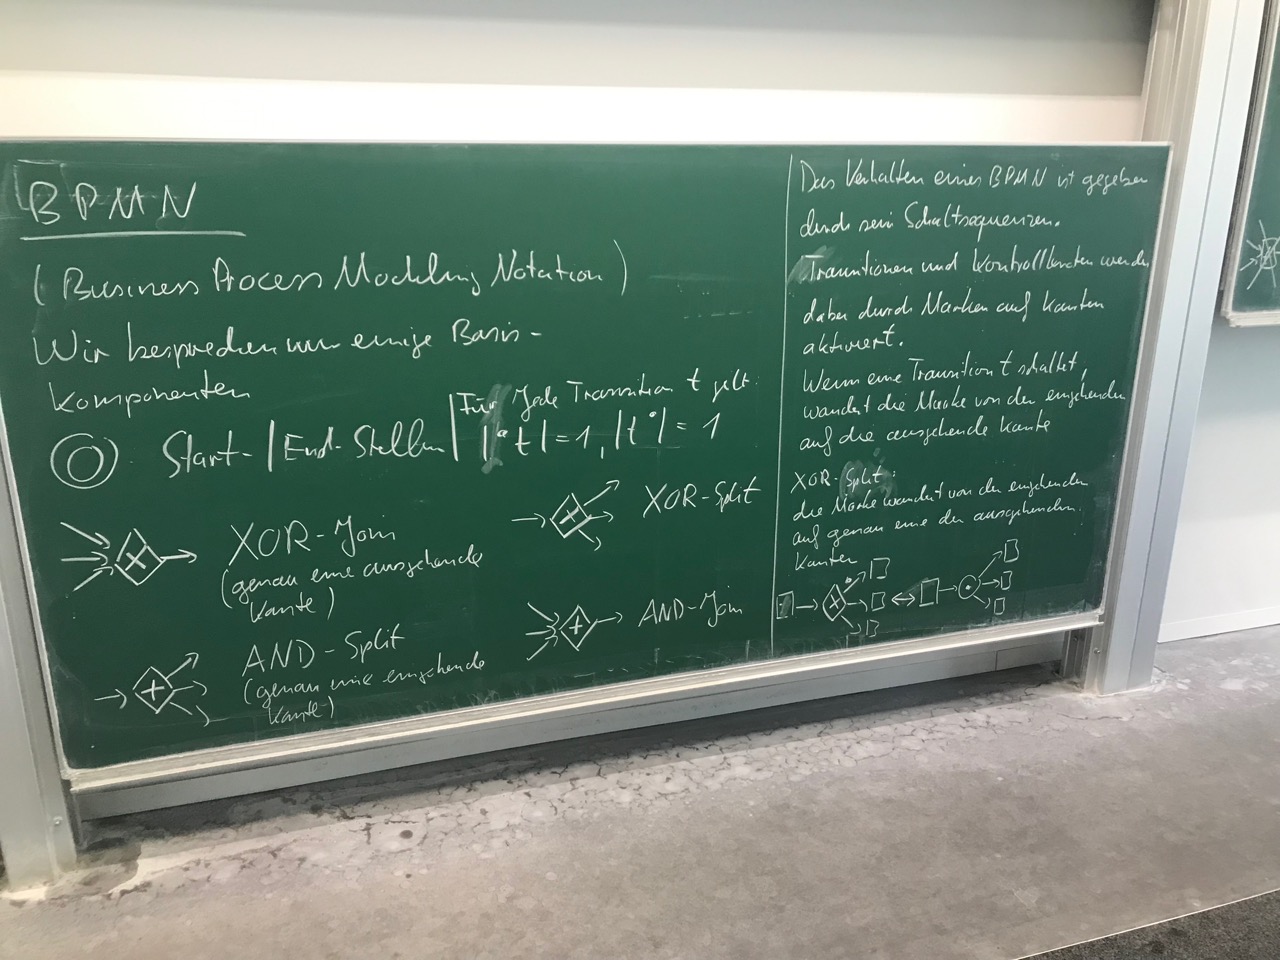 BPMN
(Business Process Modeling Notation)
Wir besprechen nur einige Basis-
komponenten
Start- | End-Stellen
Für jede Transition t gilt:
|•t| = 1, |t•| = 1
XOR-Join
(genau eine ausgehende
Kante)
XOR-Split
AND-Split
(genau eine eingehende
Kante)
AND-Join
Das Verhalten eines BPMN ist gegeben
durch sein Schaltsequenzen.
Transitionen und Kontrollknoten werden
dabei durch Marken auf Kanten
aktiviert.
Wenn eine Transition t schaltet,
wandert die Marke von der eingehenden
auf die ausgehende Kante
XOR-Split:
die Marke wandert von der eingehenden
auf genau eine der ausgehenden
Kanten